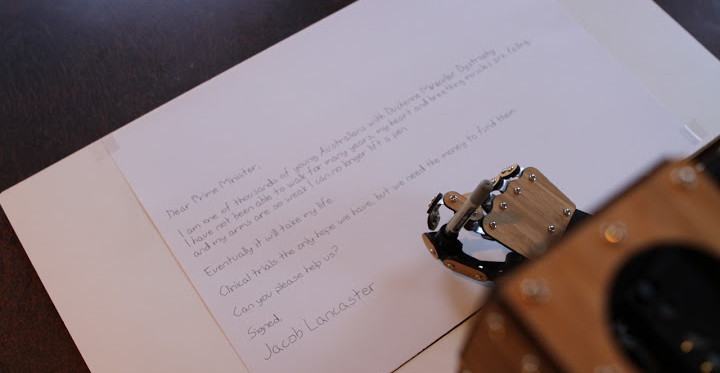 Dear Prime Minister,
I am one of thousands of young Australians with Duchenne Muscular Dystrophy
I have not been able to walk for many years, my heart and breathing muscles are failing
and my arms are so weak I can no longer lift a pen
Eventually it will take my life
Clinical trials the only hope we have, but we need the money to fund them
Can you please help us?
Signed,
Jacob Lancaster